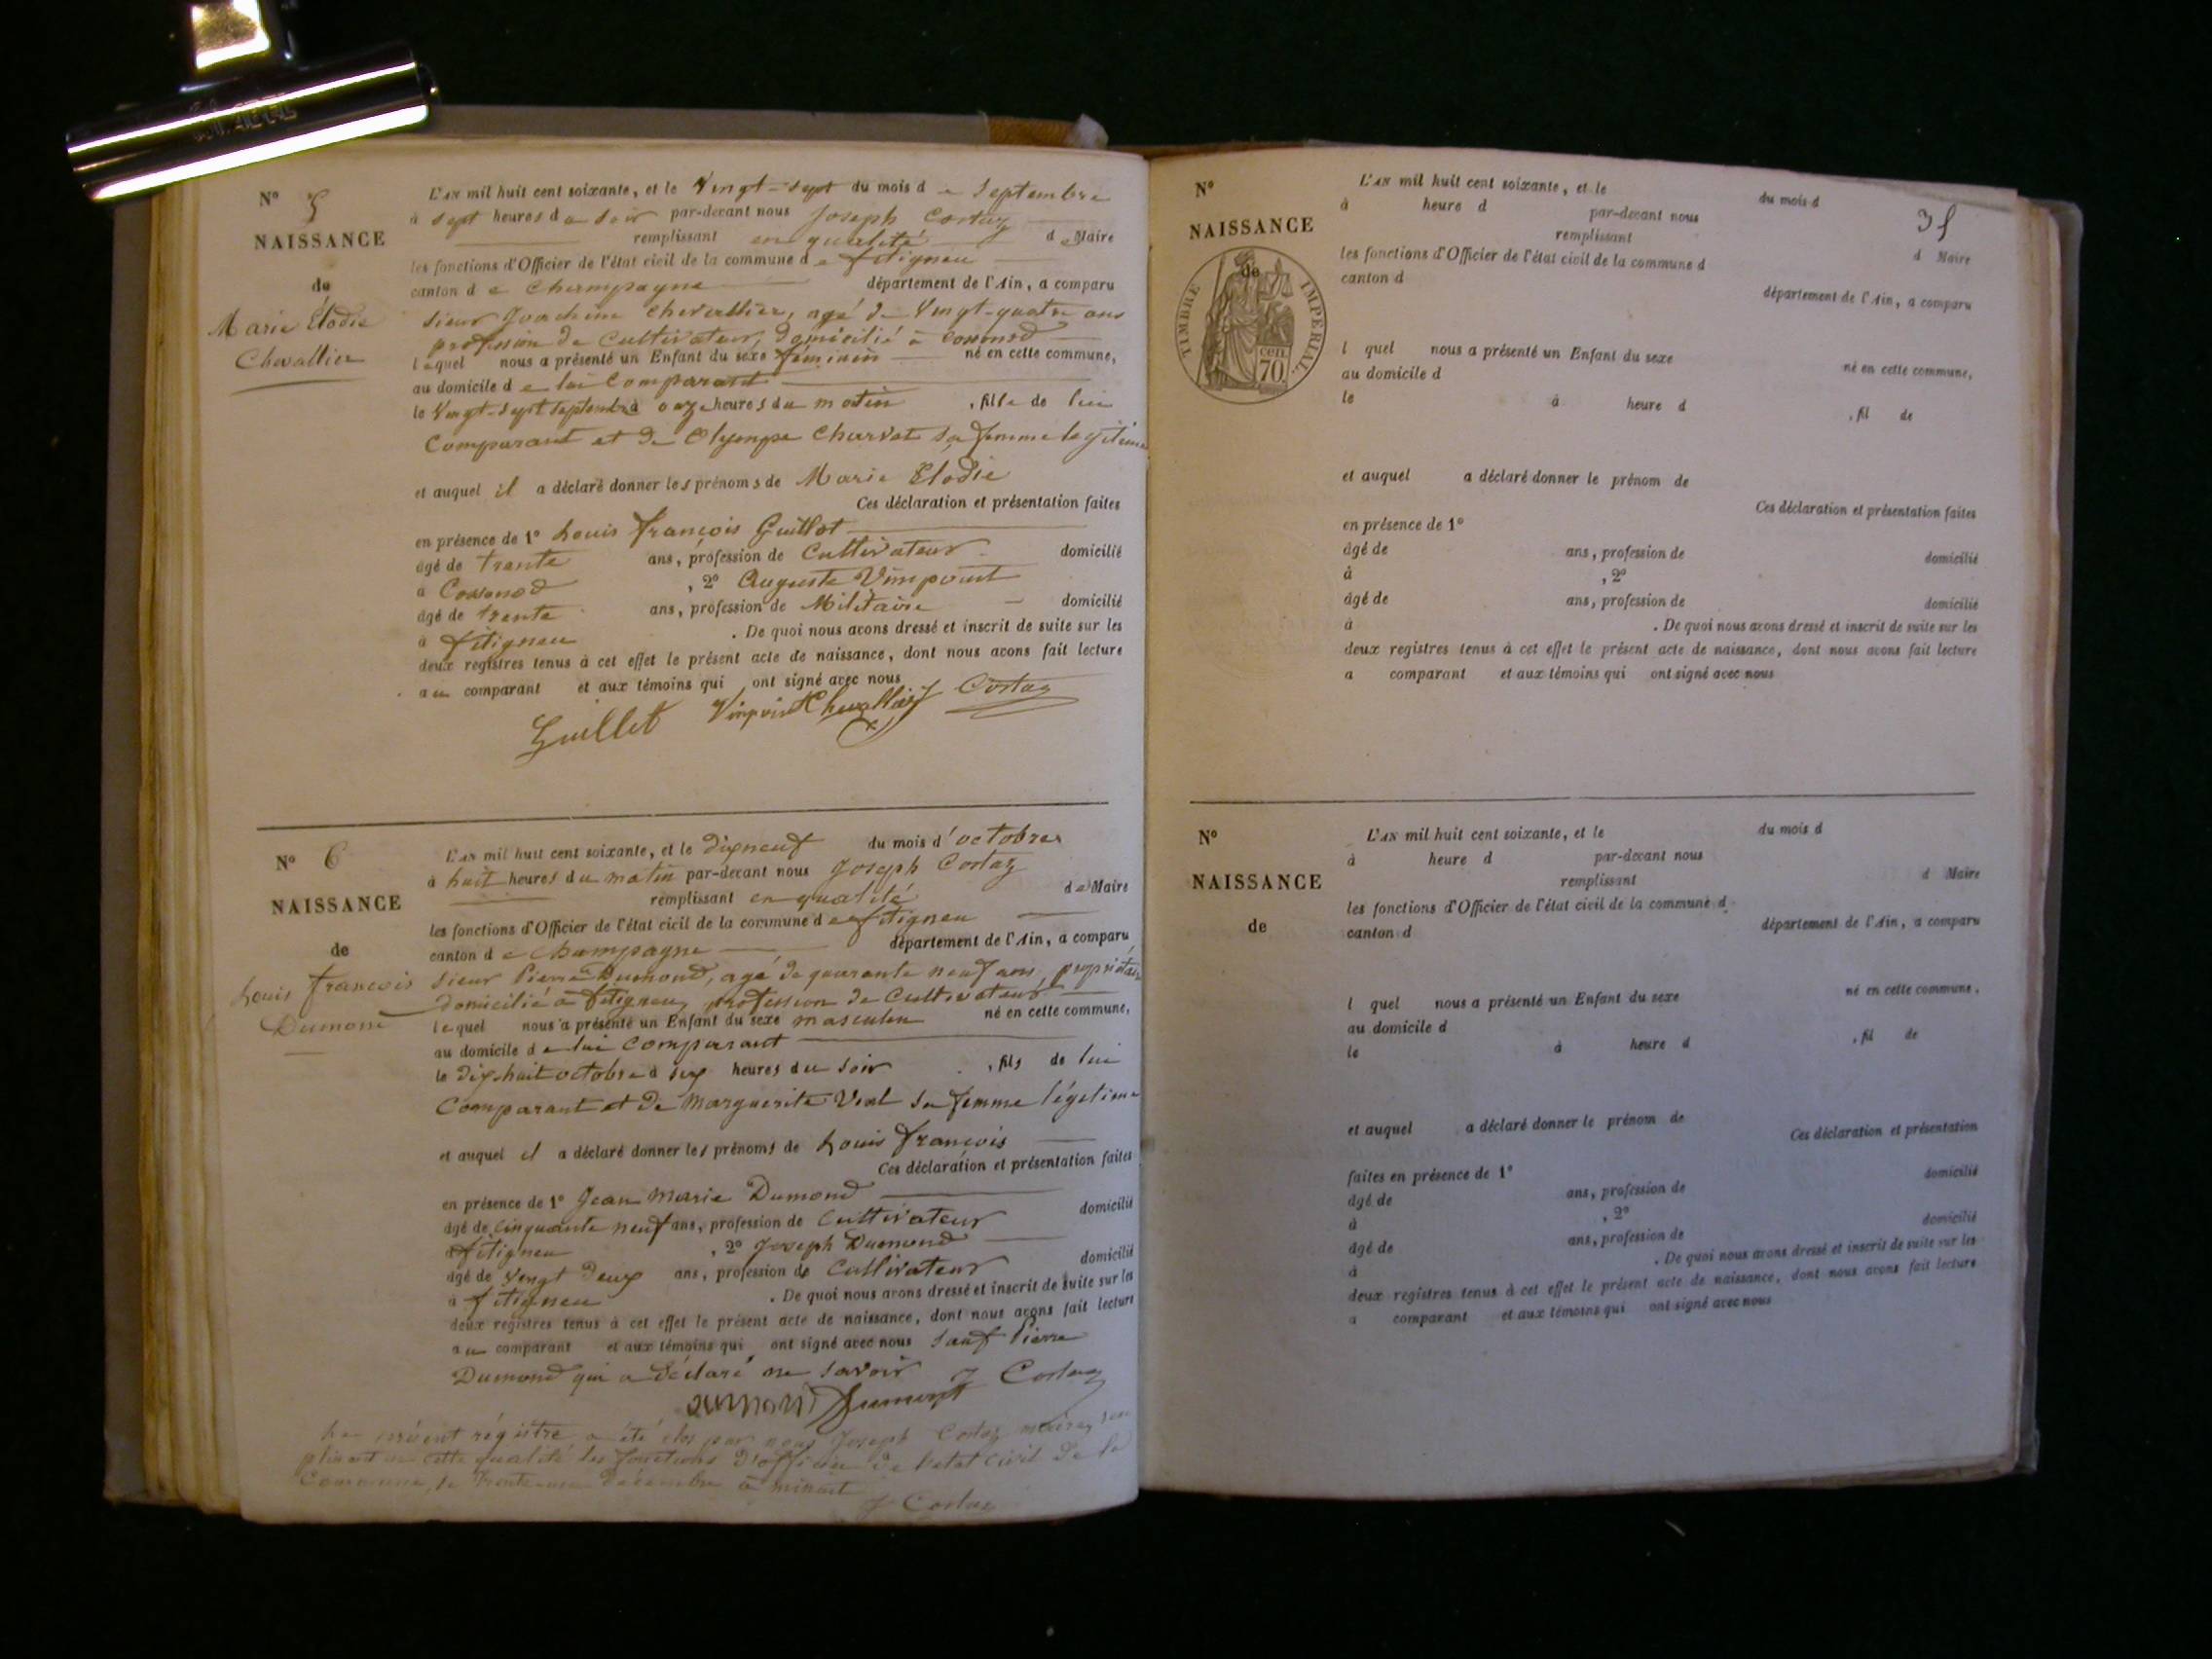 N° 5
NAISSANCE
de
Marie Élodie
Chevallier
L'AN mil huit cent soixante, et le Vingt-sept du mois de Septembre
à sept heures du soir par-devant nous Joseph Costaz
remplissant en qualité de Maire
les fonctions d'Officier de l'état civil de la commune de fitigneu
canton de Champagne département de l'Ain, a comparu
sieur Joachim Chevallier, agé de Vingt-quatre ans
profession de Cultivateur, domicilié à
lequel nous a présenté un Enfant du sexe féminin né en cette commune,
au domicile de lui Comparant
le Vingt-sept septembre à onze heures du matin, fille de lui
Comparant et de Olympe Charvet sa femme legitime
et auquel il a déclaré donner les prénoms de Marie Elodie
Ces déclaration et présentation faites
en présence de 1° Louis françois Guillot
âgé de trente ans, profession de Cultivateur domicilié
à , 2° Auguste Vimpouit
âgé de trente ans, profession de Militaire domicilié
à fitigneu . De quoi nous avons dressé et inscrit de suite sur les
deux registres tenus à cet effet le présent acte de naissance, dont nous avons fait lecture
au comparant et aux témoins qui ont signé avec nous
Guillet Chevallier J Costaz
N° 6
NAISSANCE
de
Louis francois
Dumond
L'AN mil huit cent soixante, et le dixneuf du mois d'octobre
à huit heures du matin par-devant nous Joseph Costaz
remplissant en qualité de Maire
les fonctions d'Officier de l'état civil de la commune de fitigneu
canton de Champagne département de l'Ain, a comparu
sieur Pierre Dumond, agé de quarante neuf ans, propriétaire
domicilié à fitigneu, profession de Cultivateur
lequel nous a présenté un Enfant du sexe masculin né en cette commune,
au domicile de lui Comparant
le dix-huit octobre à six heures du soir, fils de lui
Comparant et de Marguerite Vial sa femme légitime
et auquel il a déclaré donner les prénoms de Louis francois
Ces déclaration et présentation faites
en présence de 1° Jean Marie Dumond
âgé de cinquante neuf ans, profession de Cultivateur domicilié
à fitigneu , 2° Joseph Dumond
âgé de vingt deux ans, profession de Cultivateur domicilié
à fitigneu . De quoi nous avons dressé et inscrit de suite sur les
deux registres tenus à cet effet le présent acte de naissance, dont nous avons fait lecture
au comparant et aux témoins qui ont signé avec nous sauf Pierre
Dumond qui a déclaré ne savoir J Costaz
Dumont
Le présent régistre a été clos par nous Joseph Costaz maire, rem
plissant en cette qualité les fonctions d'officier de l'état civil de la
Commune, le trente-un décembre à minuit
J Costaz
N°
NAISSANCE
de
TIMBRE IMPERIAL
70 cen
L'AN mil huit cent soixante, et le du mois d
35
à heure d par-devant nous
remplissant d Maire
les fonctions d'Officier de l'état civil de la commune d
canton d département de l'Ain, a comparu
l quel nous a présenté un Enfant du sexe né en cette commune,
au domicile d
le à heure d , fil de
et auquel a déclaré donner le prénom de
Ces déclaration et présentation faites
en présence de 1°
âgé de ans, profession de domicilié
à , 2°
âgé de ans, profession de domicilié
à . De quoi nous avons dressé et inscrit de suite sur les
deux registres tenus à cet effet le présent acte de naissance, dont nous avons fait lecture
a comparant et aux témoins qui ont signé avec nous
N°
NAISSANCE
de
L'AN mil huit cent soixante, et le du mois d
à heure d par-devant nous
remplissant d Maire
les fonctions d'Officier de l'état civil de la commune d
canton d département de l'Ain, a comparu
l quel nous a présenté un Enfant du sexe né en cette commune,
au domicile d
le à heure d , fil de
et auquel a déclaré donner le prénom de
Ces déclaration et présentation
faites en présence de 1° domicilié
âgé de ans, profession de
à , 2° domicilié
âgé de ans, profession de
à . De quoi nous avons dressé et inscrit de suite sur les
deux registres tenus à cet effet le présent acte de naissance, dont nous avons fait lecture
a comparant et aux témoins qui ont signé avec nous